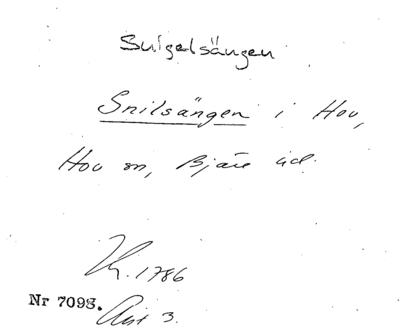 Snigelsängen
Snilsängen i Hov,
Hov sn, Bjäre hd.
K. 1786
Nr 7098. Akt 3.